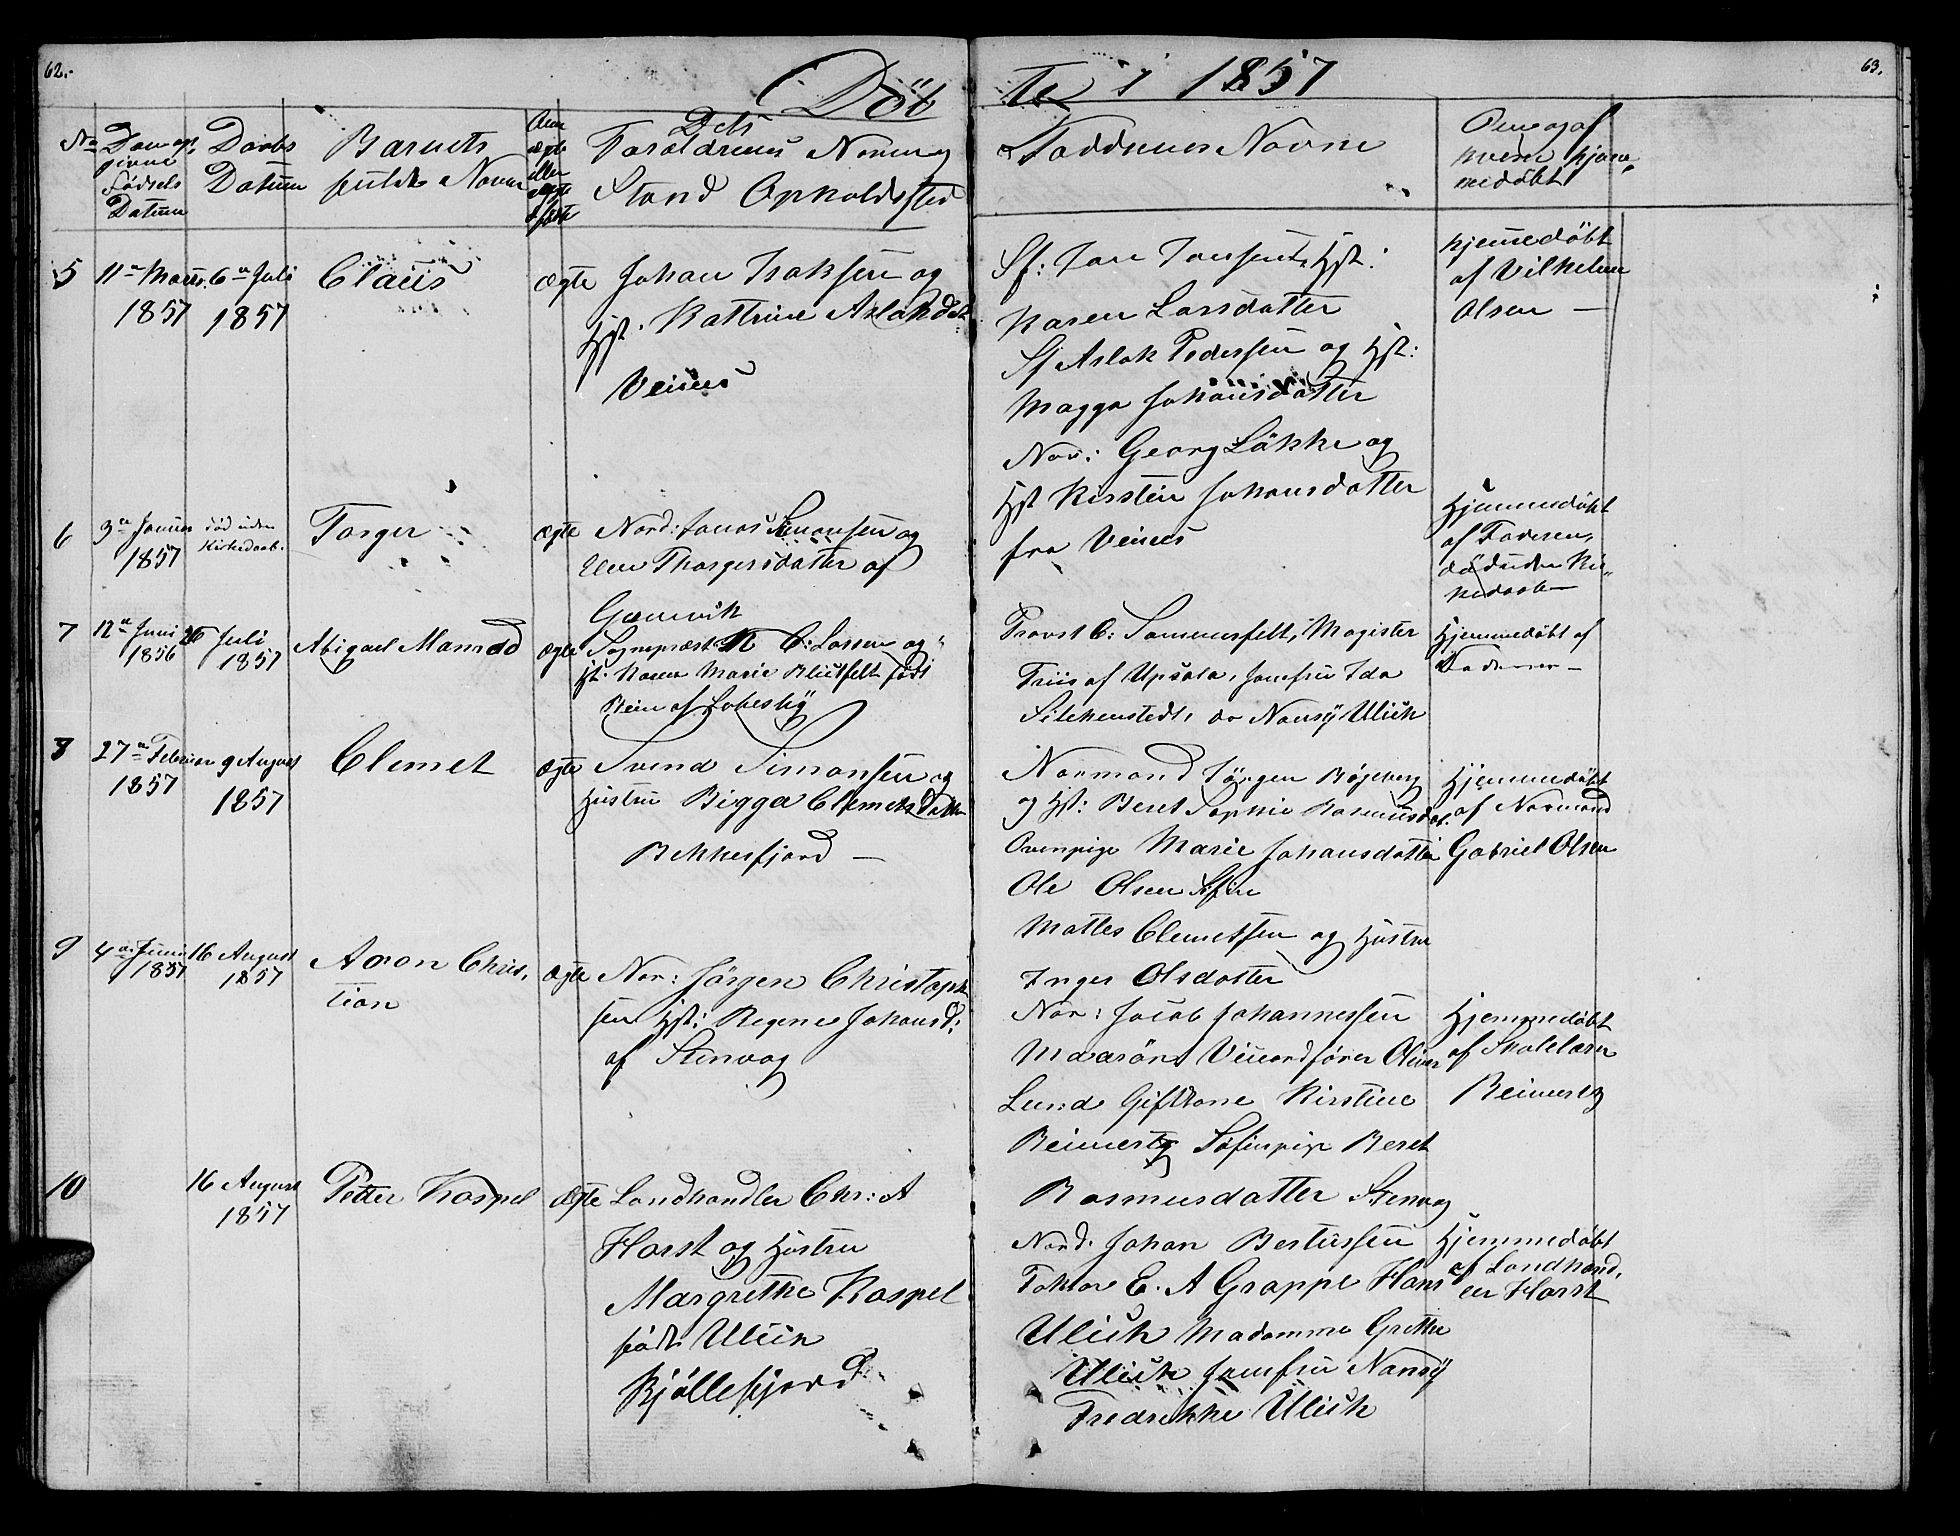 62.
63.
Döbte i 1857
No
Den og
givne
Födsels
Datum
Daabs
Datum
Barnets
fulde Navne
Om
ægte
eller
uægte
födte
Dets
Foræeldrenes Navne og
Stand Opholdssted
Faddrenes Navne
Om og af
hvem hjem-
medöbt
5
11te Marts
1857
6te Juli
1857
Claus
ægte
Johan Isaksen og
Hst. Kattrine Aslaksd
Veines
Sf: Jon Jonsen Hst:
Karen Larsdatter
Sf Aslak Pedersen og Hst:
Magga Johansdatter
Nor: Georg Lökke og
Hst Kirstin Johansdatter
fra Veines
hjemmedöbt
af Vilhelm
Olsen —
6
3te Januar
1857
död uden
Kirkedaab.
Torger
ægte
Nord: Jonas Simonsen og
Elen Thorgersdatter af
Gamvik
Hjemmedöbt
af Faderen,
död uden Kir-
kedaab —
7
12te Juni
1856
26 Juli
1857
Abigael Mamod
ægte
Sognepræst N C: Larsen og
Hst. Karen Marie Blütfelt född
Bein af Lebesby
Provst C: Sommerfelt, Magister
Friis af Upsala, Jomfru Ida
Silchenstedt, do Nansÿ Ulich
Hjemmedöbt af
Faderen —
8
27te Februar
1857
9 August
1857
Clemet
ægte
Svend Simonsen og
Hustru Bigga Clemetsdatter
Bekkerfjord —
Normand Jörgen Böjeberg
og Hst: Beret Sophie Rasmusdat.
Ovenpige Marie Johansdatter
Ole Olsen Sfin
Mattes Clemetsen og Hustru
Inger Olsdatter
Hjemmedöbt
af Normand
Gabriel Olsen
9
4de Juni
1857
16 August
1857
Aron Chris-
tian
ægte
Nor: Jörgen Christoph
sen Hst: Regine Johansd:
af Stenvog
Nor: Jacob Johannessen
Maarön, Viinordförer Oliver
Lund Gift Kone Kirstine
Beinert Söfinpige Beret
Rasmusdatter Stenvog
Hjemmedöbt
af Skolelærer
Beinert
10
16 August
1857
Petter Kaspel
Ægte
Landhandler Chr: A
Horst og Hustru
Margrethe Kaspel
född Ulich
Kjöllefjord
Nord. Johan Bertussen
Faktor E. A Grappe Hans
Ulich Madamme Grethe
Ulich Jomfru Nansÿ
Fredrekke Ulich
Hjemmedöbt
af Landhand,
ler Horst